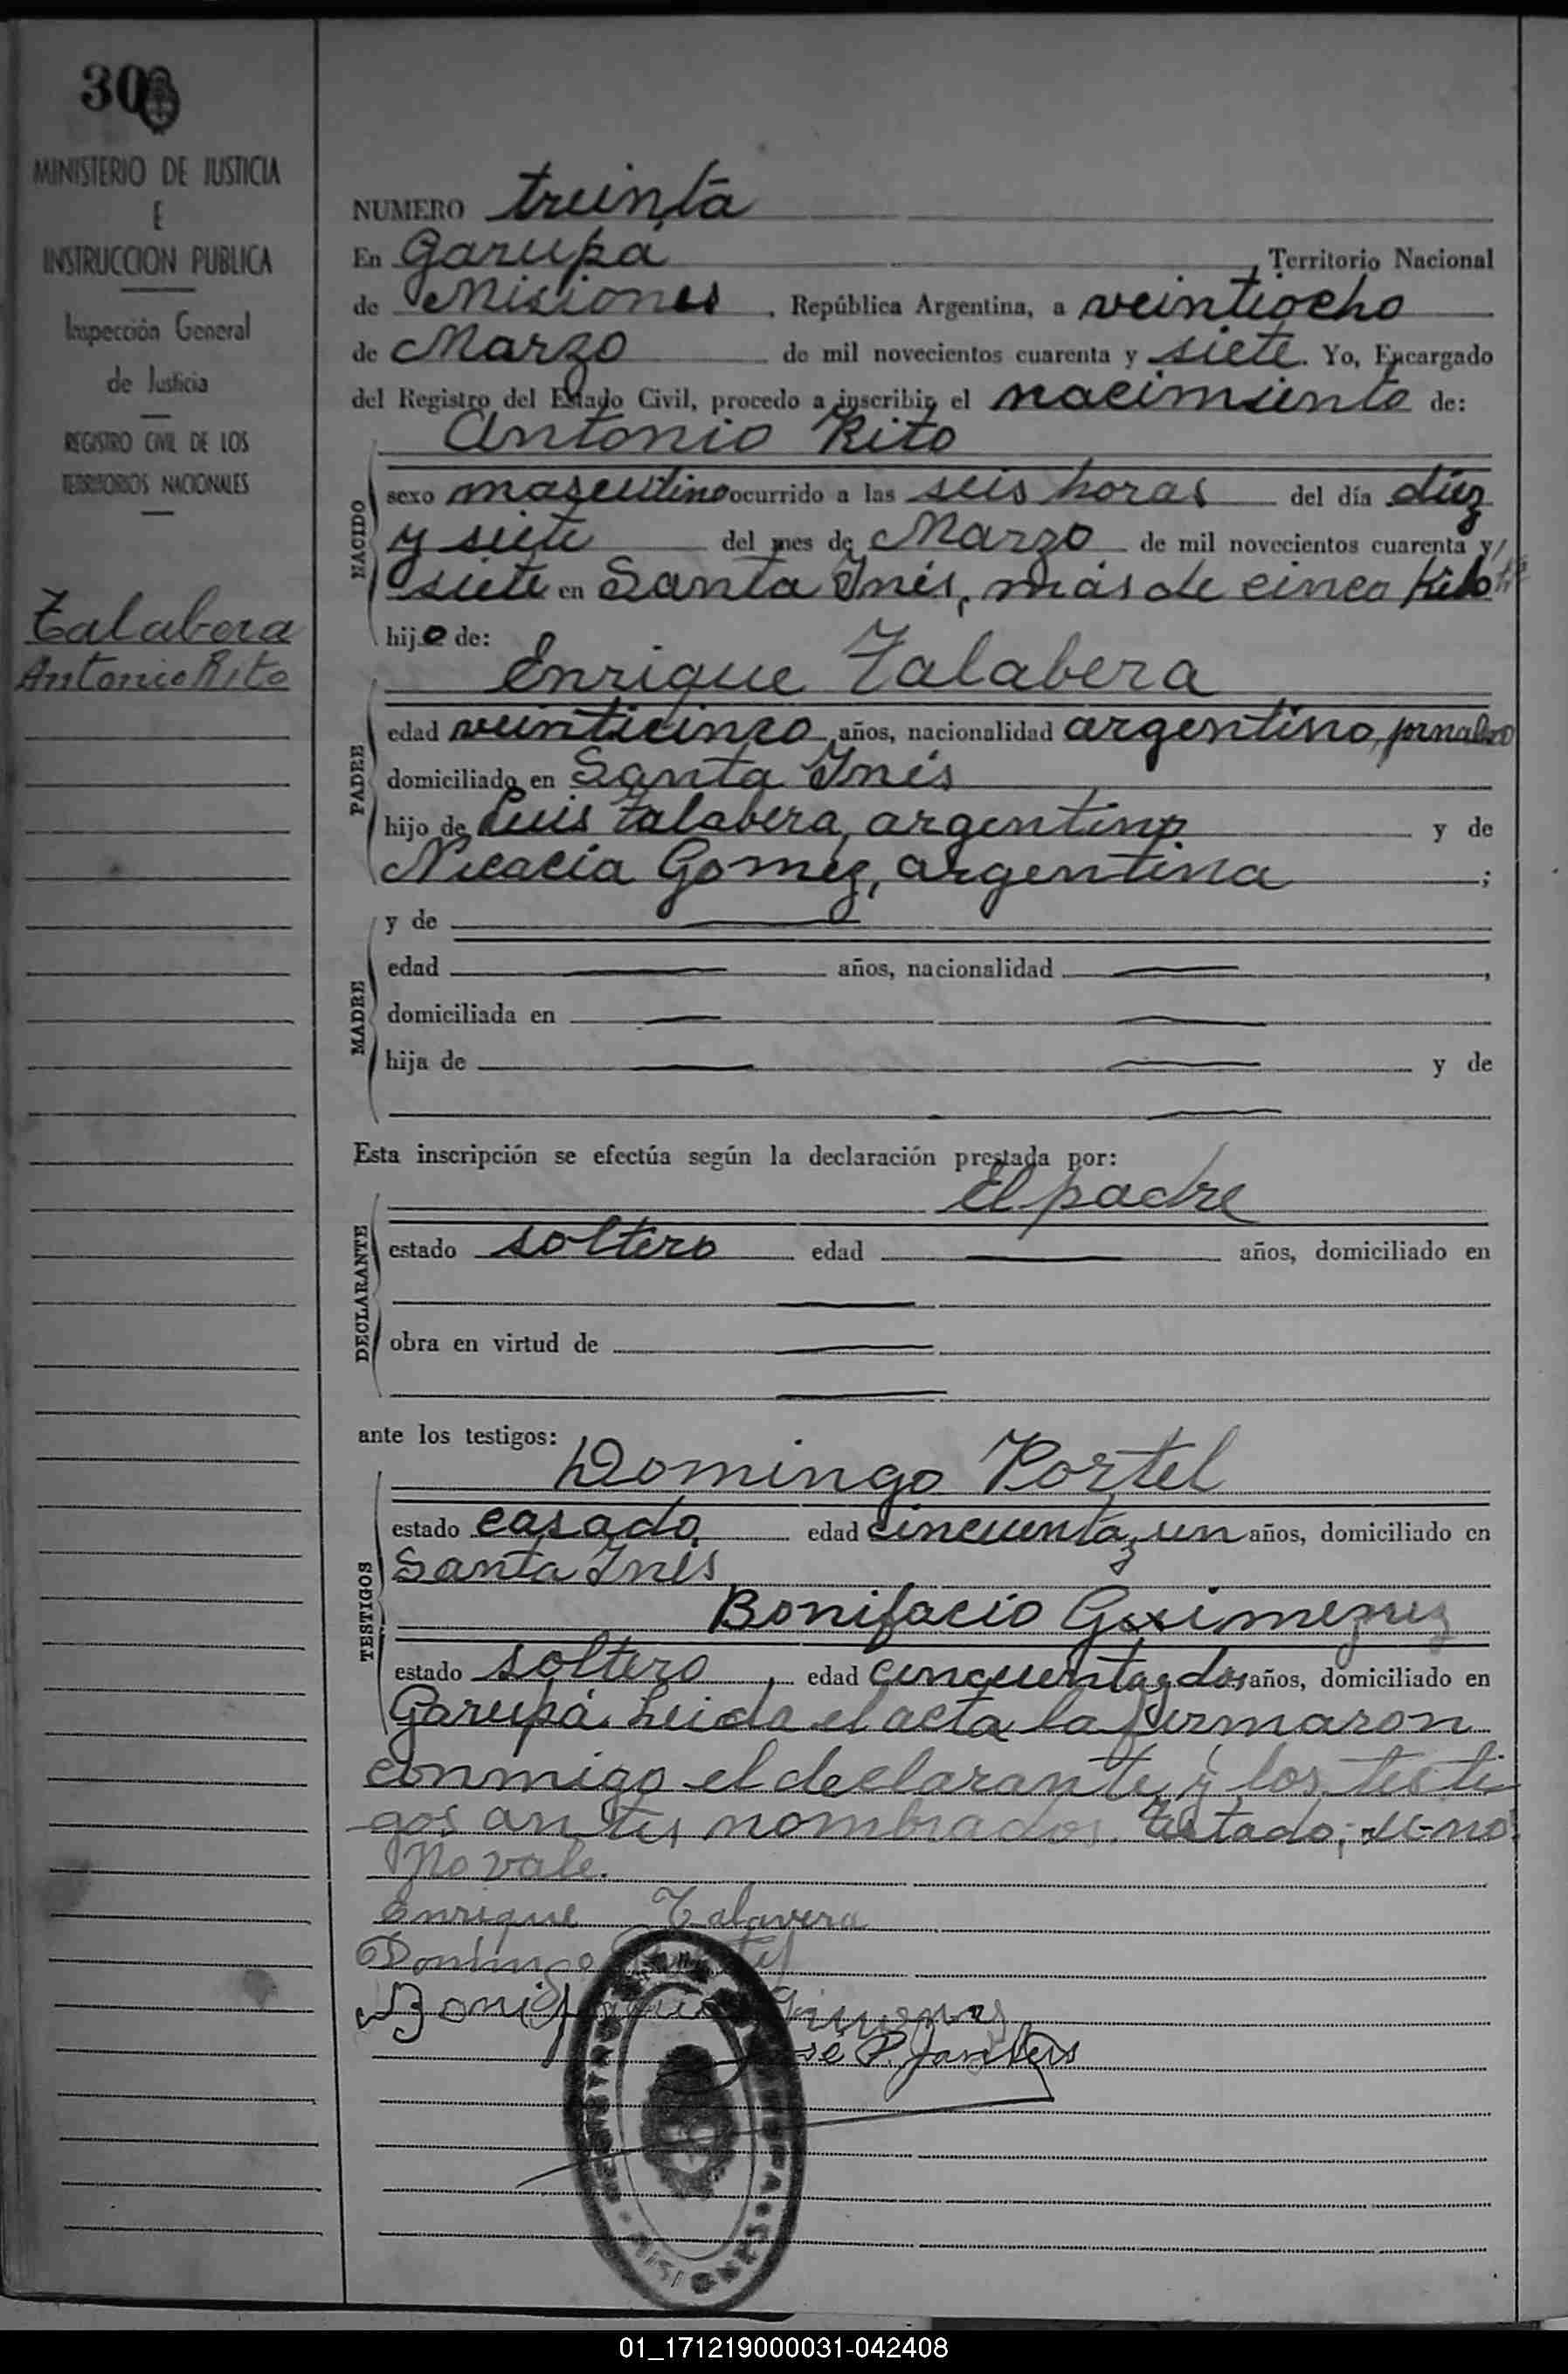 30
MINISTERIO DE JUSTICIA
E
INSTRUCCION PUBLICA
Inspección General
de Justicia
REGISTRO CIVIL DE LOS
TERRITORIOS NACIONALES
Talabera
Antonio Rito
NUMERO treinta
En Garupá, Territorio Nacional
de Misiones, República Argentina, a veintiocho
de Marzo de mil novecientos cuarenta y siete. Yo, Encargado
del Registro del Estado Civil, procedo a inscribir el nacimiento de:
Antonio Rito
NACIDO
sexo masculino ocurrido a las seis horas del día diez
y siete del mes de Marzo de mil novecientos cuarenta y
siete en Santa Inés, más de cinco Kilo
hijo de:
Enrique Talabera
PADRE
edad veinticinco años, nacionalidad argentino, jornalero
domiciliado en Santa Inés
hijo de Luis Talabera, argentino y de
Nicacia Gomez, argentina;
MADRE
y de
edad años, nacionalidad ,
domiciliada en
hija de y de
Esta inscripción se efectúa según la declaración prestada por:
El padre
DECLARANTE
estado soltero edad años, domiciliado en
obra en virtud de
ante los testigos:
Domingo Portel
TESTIGOS
estado casado edad cincuenta y un años, domiciliado en
Santa Inés
Bonifacio Gximenez
estado soltero, edad cincuenta y dos años, domiciliado en
Garupá. Leida el acta la firmaron
conmigo el declarante y los testi
gos antes nombrados. Testado;
No vale.
Enrique Talavera
Domingo
José P.
MISIONES
01_171219000031-042408